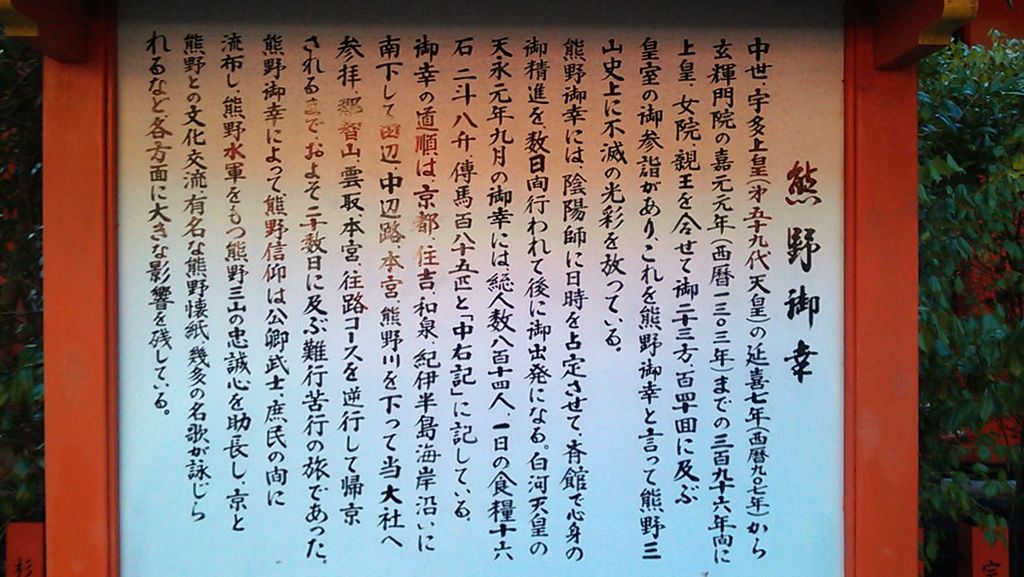 熊野御幸
中世、宇多上皇(才五十九代天皇)の延喜七年(西暦九〇七年)から
玄輝門院の嘉元元年(西暦一三〇三年)までの三百九十六年間に
上皇、女院、親王を合せて御二十三方、百四十回に及ぶ
皇室の御参詣があり、これを熊野御幸と言って熊野三
山史上に不滅の光彩を放っている。
熊野御幸には、陰陽師に日時を占定させて、斉館で心身の
御精進を数日間行われて後に御出発になる。白河天皇の
天永元年九月の御幸には総人数八百十四人、一日の食糧十六
石、二斗八升、傳馬百八十五匹と「中右記」に記している。
御幸の道順は、京都、住吉、和泉、紀伊半島海岸沿いに
南下して田辺、中辺路、本宮、熊野川を下って当大社へ
参拝、那智山、雲取、本宮、往路コースを逆行して帰京
されるまでおよそ二十数日に及ぶ難行苦行の旅であった。
熊野御幸によって、熊野信仰は公卿、武士、庶民の間に
流布し、熊野水軍をもつ熊野三山の忠誠心を助長し、京と
熊野との文化交流、有名な熊野懐紙、幾多の名歌が詠じら
れるなど各方面に大きな影響を残している。
杉